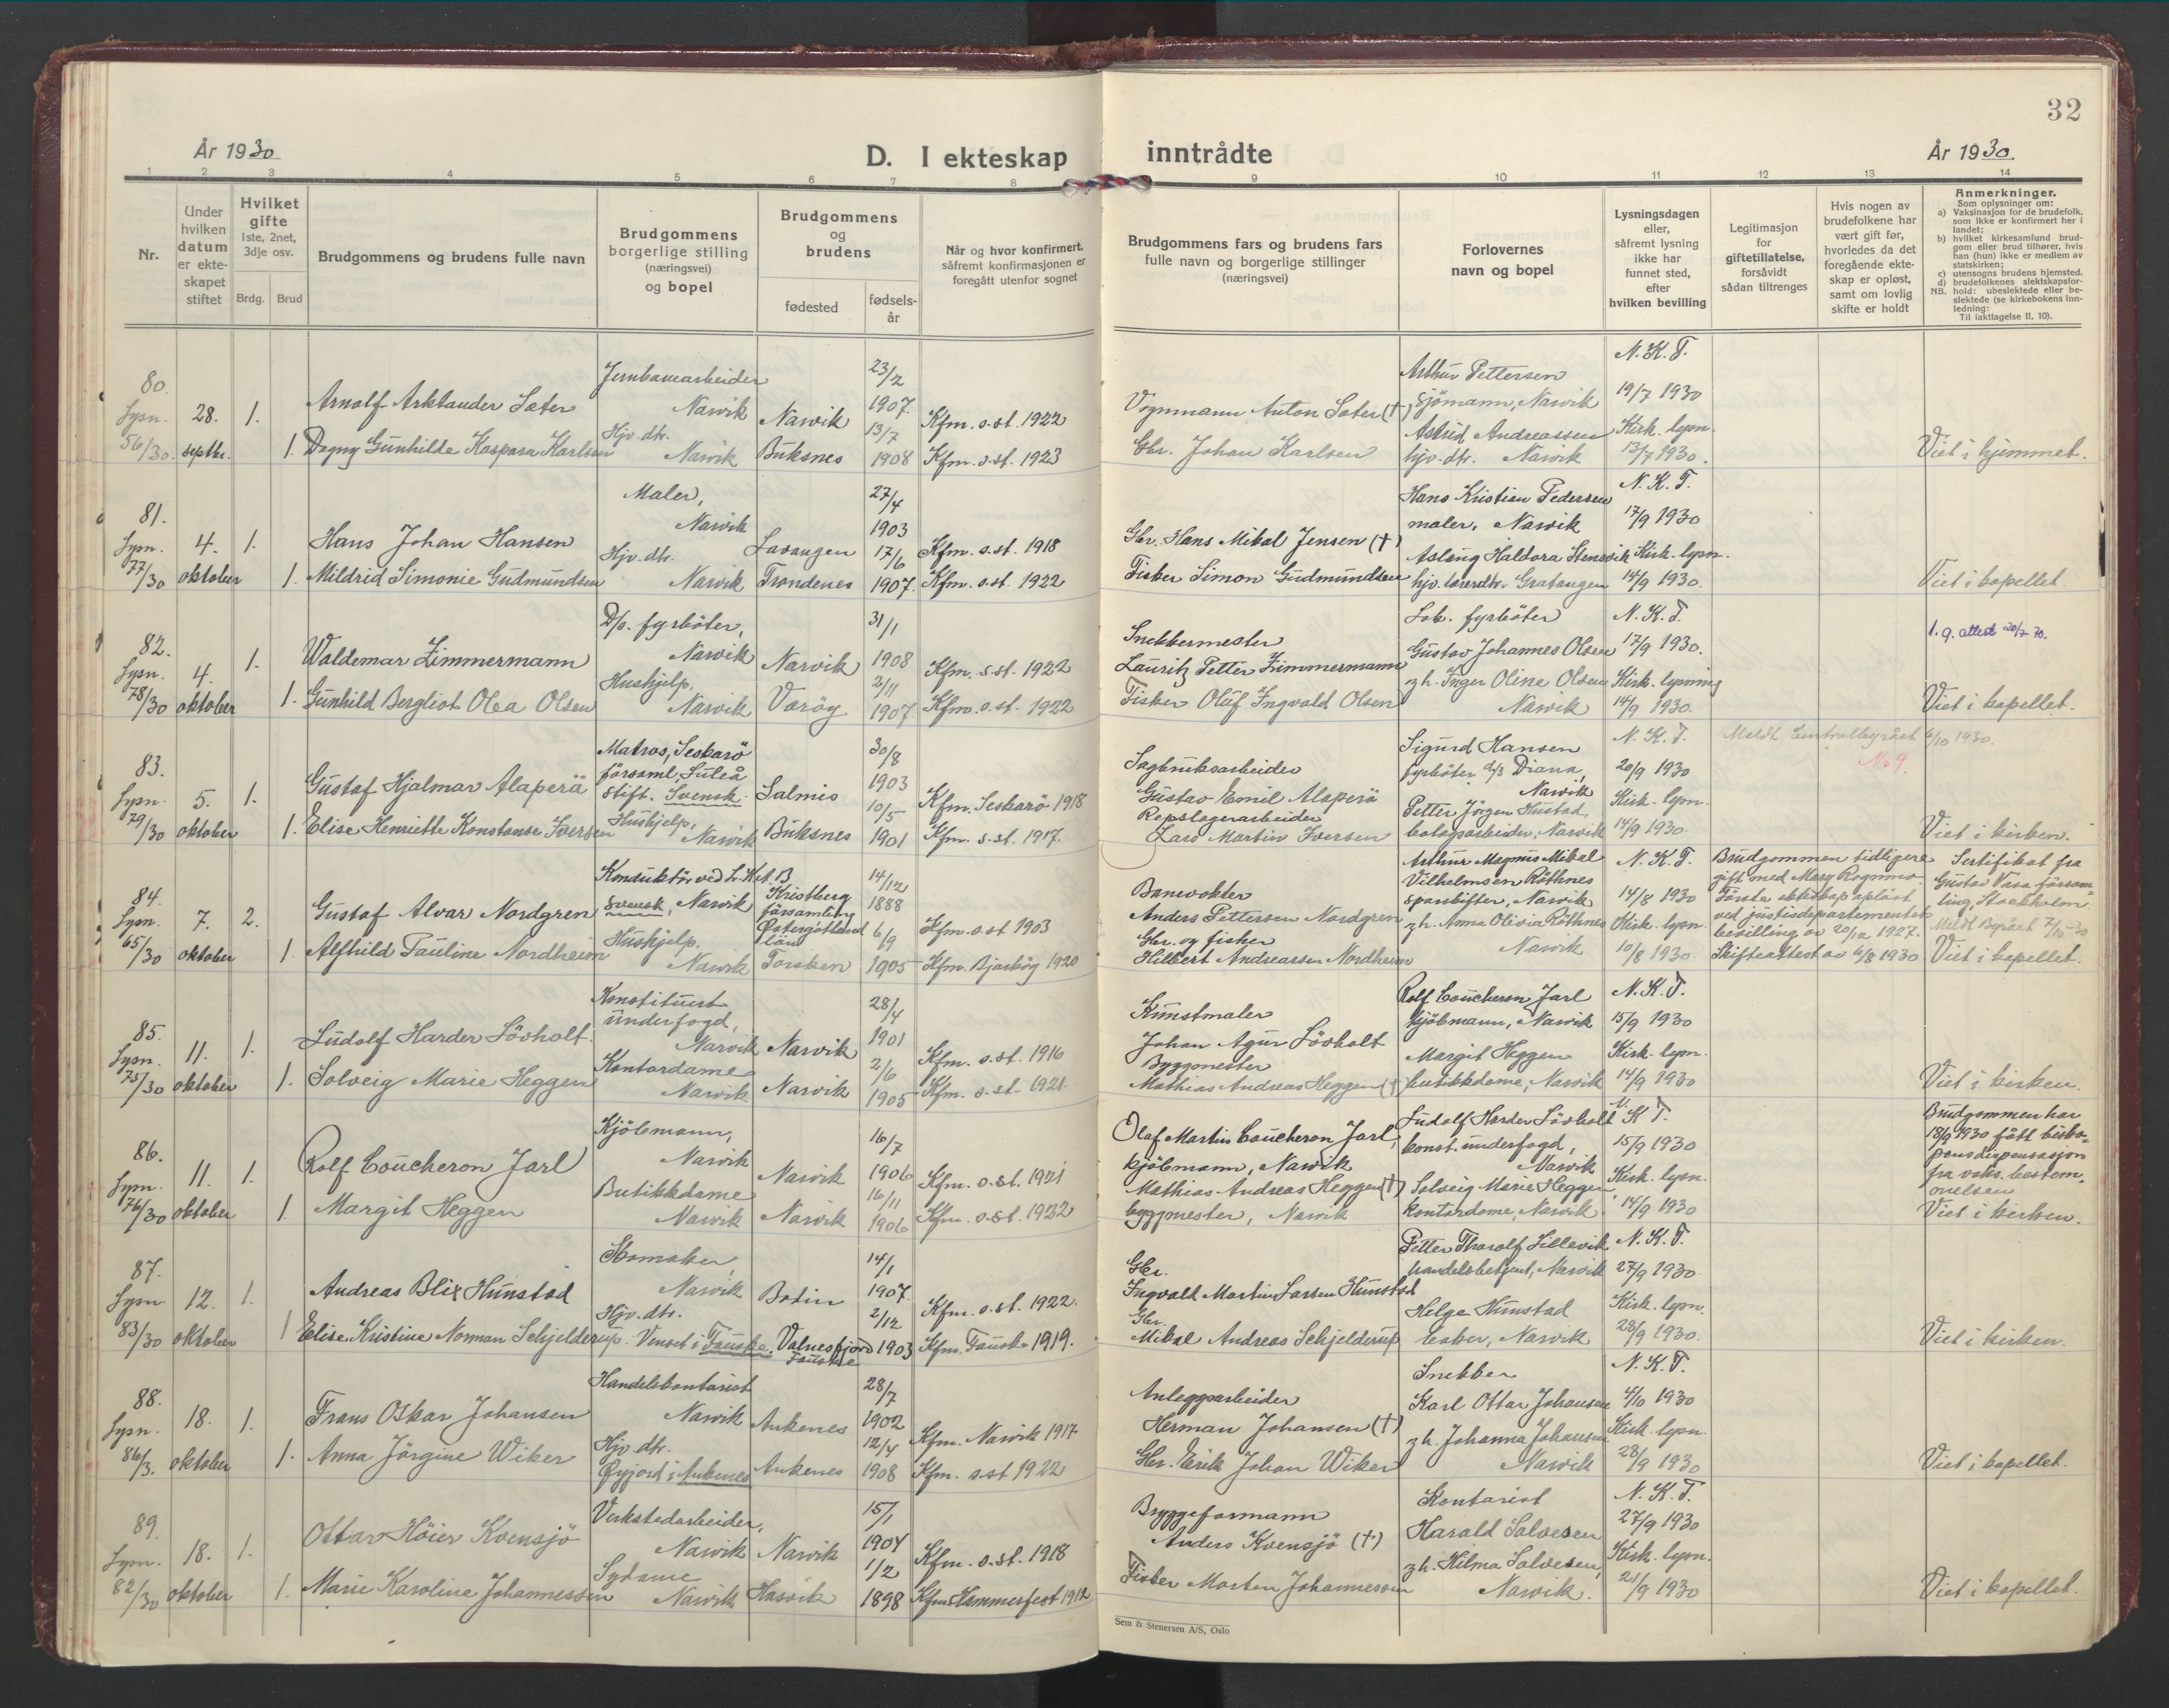 32
År 1930
D. I ekteskap inntrådte
År 1930.
1 2 3 4 5 6 7 8 9 10 11 12 13 14
Nr.
Under hvilken datum er ekte-skapet stiftet
Hvilket gifte
1ste, 2net, 3dje osv.
Brdg. Brud
Brudgommens og brudens fulle navn
Brudgommens borgerlige stilling
(næringsvei)
og bopel
Brudgommens og brudens
fødested
fødsels-år
Når og hvor konfirmert,
såfremt konfirmasjonen er
foregått utenfor sognet
Brudgommens fars og brudens fars
fulle navn og borgerlige stillinger
(næringsvei)
Forlovernes
navn og bopel
Lysningsdagen
eller,
såfremt lysning
ikke har
funnet sted,
efter
hvilken bevilling
Legitimasjon
for
giftetillatelse,
forsåvidt
sådan tiltrenges
Hvis nogen av
brudefolkene har
vært gift før,
hvorledes da det
foregående ekte-
skap er opløst,
samt om lovlig
skifte er holdt
Anmerkninger.
Som oplysninger om:
a) Vaksinasjon for de brudefolk,
som ikke er konfirmert her i
landet;
b) hvilket kirkesamfund brud-
gom eller brud tilhører, hvis
han (hun) ikke er medlem av
statskirken;
c) utensogns brudens hjemsted.
d) brudefolkenes slektskapsfor-
NB. hold: ubeslektede eller be-
slektede (se kirkebokens inn-
ledning:
Til iakttagelse II, 10).
80. Lysn. 56/30.
28. septbr.
1. 1.
Arnolf Arktander Sæter
Dagny Gunhilde Kaspara Karlsen
Jernbanearbeider
Narvik
Hjv. dtr.
Narvik
Narvik
Buksnes
23/2 1907.
13/7 1908
Kfm. s. st. 1922
Kfm. s. st. 1923
Vognmann Anton Sæter (†)
Gbr. Johan Karlsen
Arthur Pettersen
sjömann, Narvik
Astrid Andreassen
hjv. dtr. Narvik
N. K. T.
19/7 1930
Kirk. lysn.
13/7 1930.
Viet i hjemmet.
81. Lysn. 77/30
4. oktober
1. 1.
Hans Johan Hansen
Mildrid Simonie Gudmundsen
Maler,
Narvik
Hjv. dtr.
Narvik
Lavangen
Trondenes
27/4 1903
17/6 1907.
Kfm. s. st. 1918
Kfm. s. st. 1922
Gbr. Hans Mikal Jensen (†)
Fisker Simon Gudmundsen
Hans Kristian Pedersen
maler, Narvik
Aslaug Haldora Stensvik
hjv. lærerdtr. Gratangen
N. K. T.
17/9 1930
Kirk. lysn.
14/9 1930.
Viet i kapellet.
82. Lysn. 78/30
4. oktober
1. 1.
Waldemar Zimmermann
Gunhild Bergliot Olea Olsen
D/p. fyrböter,
Narvik
Hushjelp,
Narvik
Narvik
Værøy
31/1 1908
2/11 1907
Kfm. s. st. 1922
Kfm. s. st. 1922
Snekkermester
Lauritz Petter Zimmermann
Fisker Oluf Ingvald Olsen
Lok. fyrböter
Gustav Johannes Olsen
g.h. Inger Oline Olsen
Narvik
N. K. T.
17/9 1930.
Kirk. lysning
14/9 1930.
1. g. attest 20/7-70.
Viet i kapellet.
83. Lysn. 79/30
5. oktober
1. 1.
Gustaf Hjalmar Alaperä
Elise Henriette Konstanse Iversen
Matros, Seskarö
församl., Luleå
stift. Svensk.
Hushjelp,
Narvik
Salmis
Buksnes
30/8 1903
10/5 1901
Kfm. Seskarö 1918
Kfm. s. st. 1917.
Sagbruksarbeider
Gustav Emil Alaperä
Repslagerarbeider
Lars Martin Iversen
Sigurd Hansen
fyrböter d/s Diana,
Narvik
Petter Jörgen Hustad,
bolagsarbeider, Narvik
N. K. T.
20/9 1930
Kirk. lysn.
14/9 1930.
Meldt Centralbyrået 6/10 1930.
Nr 9.
Viet i kirken.
84. Lysn. 65/30
7. oktober
2. 1.
Gustaf Alvar Nordgren
Alfhild Pauline Nordheim
Konduktör ved L. K. A. B.
svensk, Narvik
Hushjelp,
Narvik
Kristberg
församling
Østergötland
län
Torsken
14/12 1888
6/9 1905
Kfm. s. st 1903
Kfm. Bjarkøy 1920
Banevokter
Anders Pettersen Nordgren
Gbr. og fisker
Hilbert Andreassen Nordheim
Arthur Magnus Mikal
Vilhelmsen Röthnes
sporskifter, Narvik
g.h. Anna Olivia Röthnes
Narvik
N. K. T.
14/8 1930
Kirk. lysn.
10/8 1930.
Brudgommen tidligere
gift med Mary Rognmo.
Første ekteskap opløst
ved justisdepartementets
bevilling av 20/12 1927.
Skifteattest av 6/8 1930
Sertifikat fra
Gustav Vasa försam-
ling, Stockholm
Meldt Byrået 7/10-30
Viet i kapellet.
85. Lysn. 75/30
11. oktober
1. 1.
Ludolf Harder Lövholt.
Solveig Marie Heggen
Konstituert
underfogd,
Narvik
Kontordame
Narvik
Narvik
Narvik
28/4 1901
2/6 1905
Kfm. s. st. 1916
Kfm. s. st. 1921.
Kunstmaler
Johan Agur Lövholt
Byggmester
Mathias Andreas Heggen (†)
Rolf Coucheron Jarl
kjöbmann, Narvik
Margit Heggen
butikkdame, Narvik
N. K. T.
15/9 1930
Kirk. lysn.
14/9 1930
Viet i kirken.
86. Lysn. 76/30
11. oktober
1. 1.
Rolf Coucheron Jarl
Margit Heggen
Kjöbmann,
Narvik
Butikkdame
Narvik
Narvik
Narvik
16/7 1906
16/11 1906
Kfm. s. st. 1921
Kfm. s. st. 1922
Olaf Martin Coucheron Jarl,
kjöbmann, Narvik
Mathias Andreas Heggen (†)
byggmester, Narvik
Ludolf Harder Lövholt
konst. underfogd,
Narvik
Solveig Marie Heggen,
kontordame, Narvik
N. K. T.
15/9 1930
Kirk. lysn.
14/9 1930
Brudgommen har
18/9 1930 fått bisko-
pens dispensasjon
fra vaks. bestem-
melsen
Viet i kirken.
87. Lysn. 83/30
12. oktober
1. 1
Andreas Blix Hunstad
Elise Kristine Norman Schjelderup.
Skomaker,
Narvik
Hjv. dtr.
Venset i Fauske.
Bodin
Valnesfjord
Fauske
14/1 1907.
2/12 1903
Kfm. s. st. 1922.
Kfm. Fauske 1919.
Gbr.
Ingvald Martin Larsen Hunstad
Gbr.
Mikal Andreas Schjelderup
Petter Tharalf Lillevik
handelsbetjent, Narvik
Helge Hunstad
baker, Narvik
N. K. T.
27/9 1930
Kirk. lysn.
28/9 1930.
Viet i kirken.
88. Lysn. 86/3.
18. oktober
1. 1.
Frans Oskar Johansen
Anna Jörgine Wiker
Handelskontorist
Narvik
Hjv. dtr.
Øyjord i Ankenes
Ankenes
Ankenes
28/7 1902
12/4 1908
Kfm. Narvik 1917
Kfm. s. st 1922
Anleggsarbeider
Herman Johansen (†)
Gbr. Erik Johan Wiker
Snekker
Karl Ottar Johansen
g.h. Johanna Johansen
Narvik
N. K. T.
4/10 1930
Kirk. lysn.
28/9 1930
Viet i kapellet.
89. Lysn. 82/30
18. oktober
1. 1.
Ottar Höier Kvensjö
Marie Karoline Johannessen
Verkstedarbeider,
Narvik
Sydame
Narvik
Narvik
Hasvik
15/1 1904
1/2 1898
Kfm. s. st. 1918
Kfm. Hammerfest 1912
Bryggeformann
Anders Kvensjö (†)
Fisker Morten Johannessen
Kontorist
Harald Solvesen
g.h. Hilma Solvesen,
Narvik.
N. K. T.
27/9 1930
Kirk. lysn.
21/9 1930
Viet i kapellet.
Sem & Stenersen A/S, Oslo